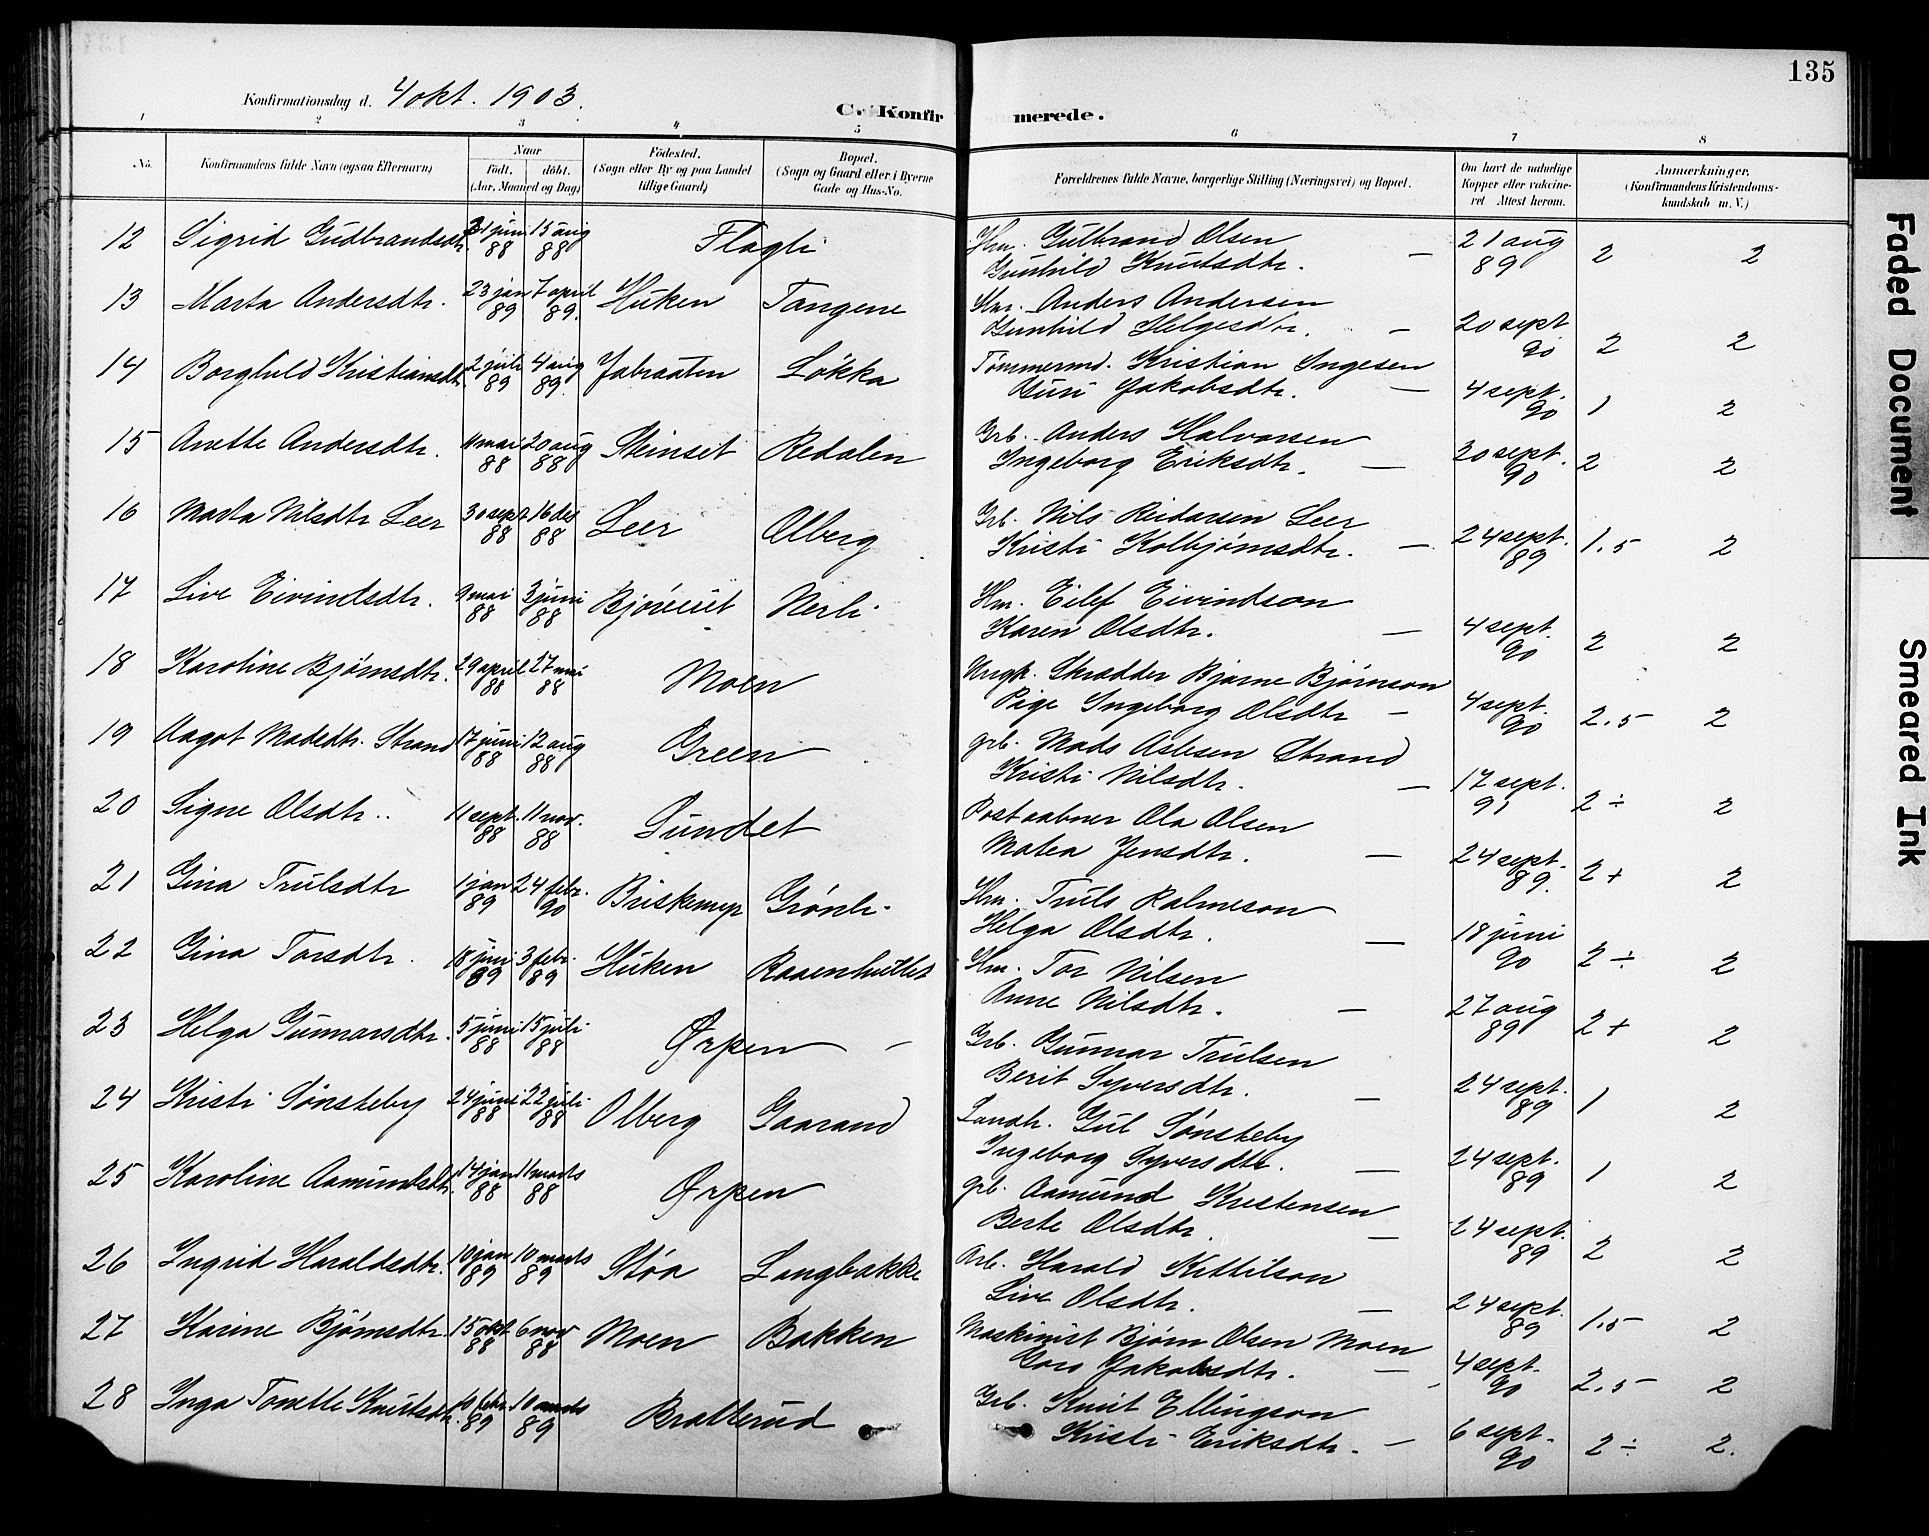 135
Konfirmationsdag d. 4 okt. 1903.
C. Konfirmerede.
1 2 3 4 5 6 7 8
No. Konfirmandens fulde Navn (ogsaa Efternavn) Naar født. døbt. (Aar, Maaned og Dag) Fødested. (Sogn eller By og paa Landet tillige Gaard) Bopæl. (Sogn og Gaard eller i Byerne Gade og Hus-No. Forældrenes fulde Navne, borgerlige Stilling (Næringsvei) og Bopæl. Om havt de naturlige Kopper eller vakcineret Attest herom. Anmerkninger, (Konfirmandens Kristendomskundskab m. V.)
12 Sigrid Gudbrandsdtr. 88 15 aug 88 Flagli Hm. Gulbrand Olsen
Gunhild Knutsdtr. — 21 aug 89 2 2
13 Marta Andersdtr. 23 jan 89 7 april 89. Huken Tangene Hm. Anders Andersen
Gunhild Helgesdtr. — 20 sept 90 2 2
14 Borghild Kristiansdtr. 2 juli 89 4 aug 89. Jabraaten Løkka Tømmermd. Kristian Ingesen
Guri Jakobsdtr. — 4 sept. 90 1 2
15 Anette Andersdtr. 11 mai 88 20 aug 88 Steinset Redalen Grb. Anders Halvorsen
Ingeborg Eriksdtr. — 20 sept. 90 2 2
16 Marta Nilsdtr Leer 30 sept 88 16 des 88 Leer Olberg Grb. Nils Reidarsen Leer
Kristi Kolbjørnsdtr. — 24 sept. 89 1.5 2
17 Live Eivindsdtr. 9 mai 88 3 juni 88 Nerli Hm. Eilef Eivindson
Karen Olsdtr. — 4 sept. 90 2 2
18 Karoline Bjørnsdtr. 29 april 88 27 mai 88 Moen Ungk. Skrædder Bjarne Bjørnson
Pige Ingeborg Olsdtr — 4 sept. 90 2.5 2
19 Aagot Madsdtr. Strand 17 juni 88 12 aug 88 Green grb. Mads Aslesen Strand
Kristi Nilsdtr. — 17 sept. 91 2 ÷ 2
20 Signe Olsdtr. 11 sept. 88 11 nov. 88 Sundet Postaabner Ola Olsen
Matea Jensdtr. — 24 sept. 89. 2 + 2
21 Gina Trulsdtr 1 jan 89 24 febr. 90 Briskemyr Grønli Hm. Truls Palmeson
Helga Olsdtr. — 18 juni 90 2 ÷ 2
22 Gina Torsdtr. 89 3 febr. 89 Huken Raaenhullet Hm. Tor Nilsen
Anne Nilsdtr. — 27 aug 89 2 + 2
23 Helga Gunnarsdtr. 5 juni 88 15 juli 88 Ørpen — Grb. Gunnar Trulsen
Berit Syversdtr. — 24 sept. 89 1 2
24 Kristi Sønsteby 24 juni 88 22 juli 88 Olberg Gaarand Landh. Gul Sønsteby
Ingeborg Syversdtr. — 24 sept. 89 1 2
25 Karoline Aamundsdtr. 14 jan 88 11 marts 88 Ørpen grb. Aamund Kristensen
Berte Olsdtr. — 24 sept. 89 2 2
26 Ingrid Haraldsdtr. 10 jan 89 10 marts 89 Støa Langbakke Arb. Harald Kittilson
Live Olsdtr. — 24 sept. 89 1.5 2
27 Karine Bjørnsdtr. 15 okt 88 6 nov 88 Moen Bakken Maskinist Bjørn Olsen Moen
Goro Jakobsdtr. — 4 sept. 90 2.5 2
28 Inga Tonette Knutsdtr. 11 febr. 89 10 marts 89 Bratterud Grb. Knut Ellingson
Kristi Eriksdtr. — 6 sept. 90 2 ÷ 2.
Faded Document
Smeared Ink